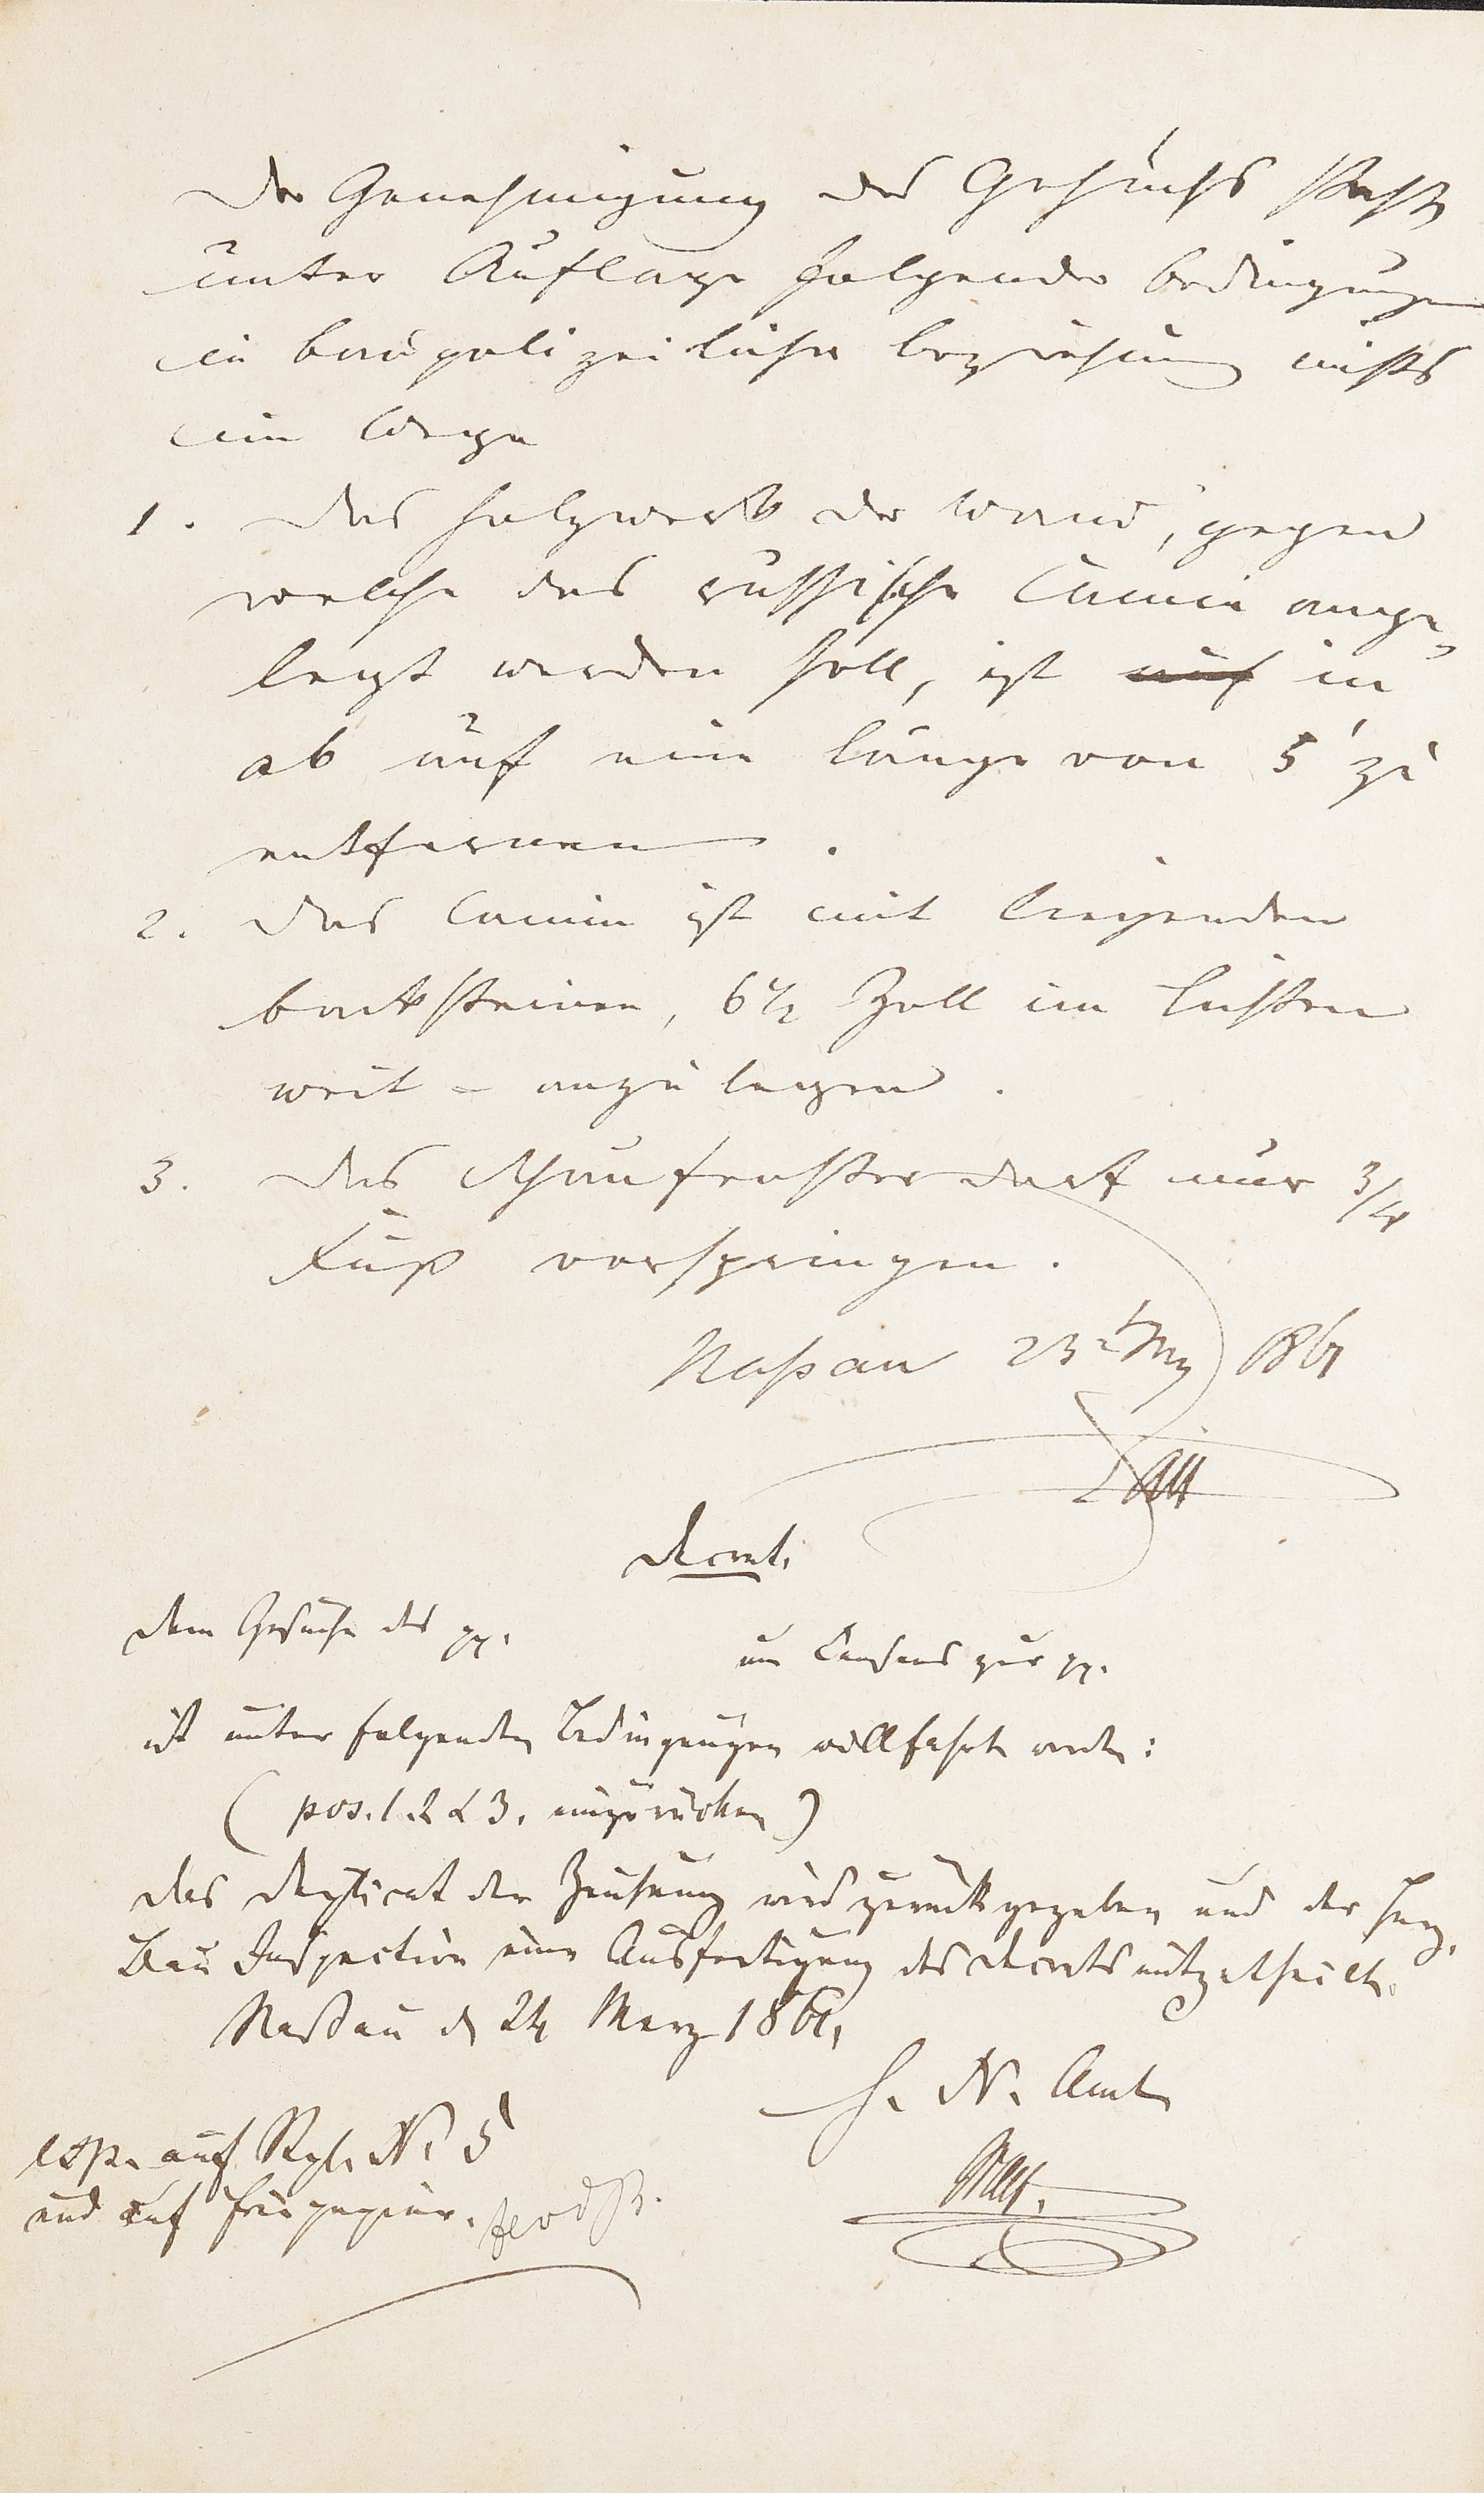 Der Genehmigung des Gesuchs steht
unter Auflage folgender Bedingungen
in baupolizeilicher Beziehung nichts
im Wege
1. Das Holzwerk der Wand, gegen
welche das russische Camin ange-
legt werden soll, ist auf in
ab auf eine Länge von 5' zu
entfernen.
2. Das Camin ist mit liegenden
Backsteinen, 6 1/2 Zoll im Lichten
weit - anzulegen.
3. Das Schaufenster darf nur 3/4
Fuß vorspringen.
Naßau 23t 1861
Decret.
Dem Gesuche des pp.
um Consens zur pp.
ist unter folgenden Bedingungen willfahrt worden:
(pos. 1. 2 & 3. einzurücken)
Das Duplicat der Zeichnung wird zurückgegeben und der Herz.
Bau Inspection eine Ausfertigung des Decrets mitgetheilt.
Naßau d 24 Merz 1861.
H. N. Amt
exp. auf Stpl. N. 5
und auf freipapier.